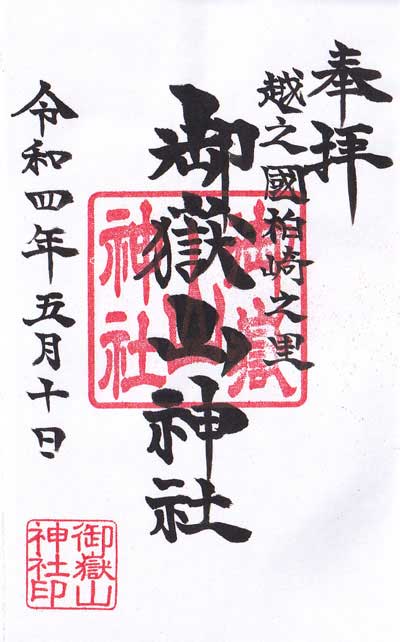 奉拝
越之國柏崎之里
御嶽山神社
御嶽山
神社
令和四年五月十日
御嶽山
神社印